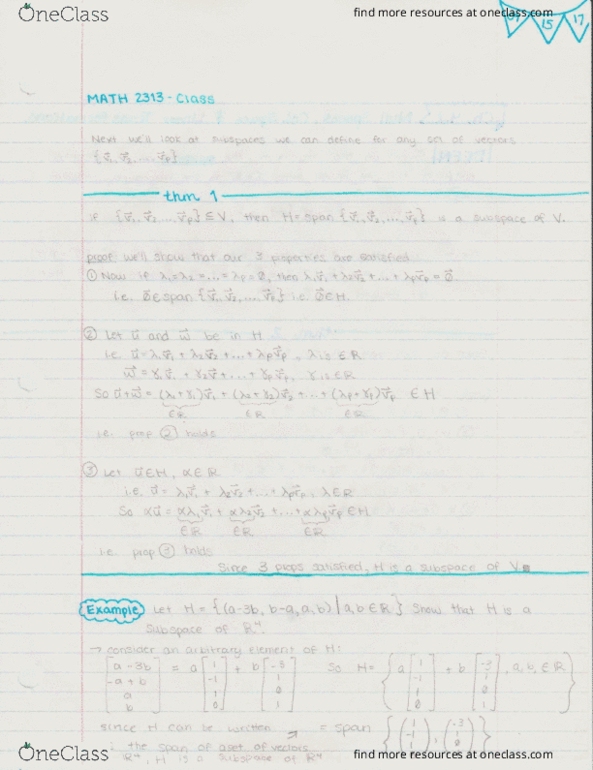 OneClass
find more resources at oneclass.com
15 17
MATH 2313 - Class
Next we'll look at subspaces we can define for any set of vectors
{v⃗₁, v⃗₂, ..., v⃗p}
thm 1
If {v⃗₁, v⃗₂, ..., v⃗p} ⊆ V, then H = span {v⃗₁, v⃗₂, ..., v⃗p} is a subspace of V.
proof we'll show that our 3 properties are satisfied
① Now if λ₁=λ₂=...=λp=0, then λ₁v⃗₁ + λ₂v⃗₂ + ... + λpv⃗p = 0⃗
i.e. 0⃗ ∈ span {v⃗₁, v⃗₂, ..., v⃗p} i.e. 0⃗ ∈ H.
② Let u⃗ and w⃗ be in H
i.e. u⃗ = λ₁v⃗₁ + λ₂v⃗₂ + ... + λpv⃗p, λ is ∈ ℝ
w⃗ = γ₁v⃗₁ + γ₂v⃗ + ... + γpv⃗p, γ is ∈ ℝ
So u⃗+w⃗ = (λ₁+γ₁)v⃗₁ + (λ₂+γ₂)v⃗₂ + ... + (λp+γp)v⃗p ∈ H
∈ℝ ∈ℝ ∈ℝ
i.e. prop ② holds
③ Let u⃗ ∈ H, α ∈ ℝ
i.e. u⃗ = λ₁v⃗₁ + λ₂v⃗₂ + ... + λpv⃗p, λ ∈ ℝ
So αu⃗ = αλ₁v⃗₁ + αλ₂v⃗₂ + ... + αλpv⃗p ∈ H
∈ℝ ∈ℝ ∈ℝ
i.e. prop ③ holds
Since 3 props satisfied, H is a subspace of V
Example Let H = {(a-3b, b-a, a, b) | a,b ∈ ℝ} Show that H is a
Subspace of ℝ⁴.
→ consider an arbitrary element of H:
[a-3b] = a [1] + b [-3] So H = { a [1] + b [-3], a,b, ∈ ℝ }
[-a+b] [-1] [1] [-1] [1]
[a] [1] [0] [1] [0]
[b] [0] [1] [0] [1]
since H can be written = span
the span of a set of vectors
ℝ⁴, H is a subspace of ℝ⁴
OneClass
find more resources at oneclass.com